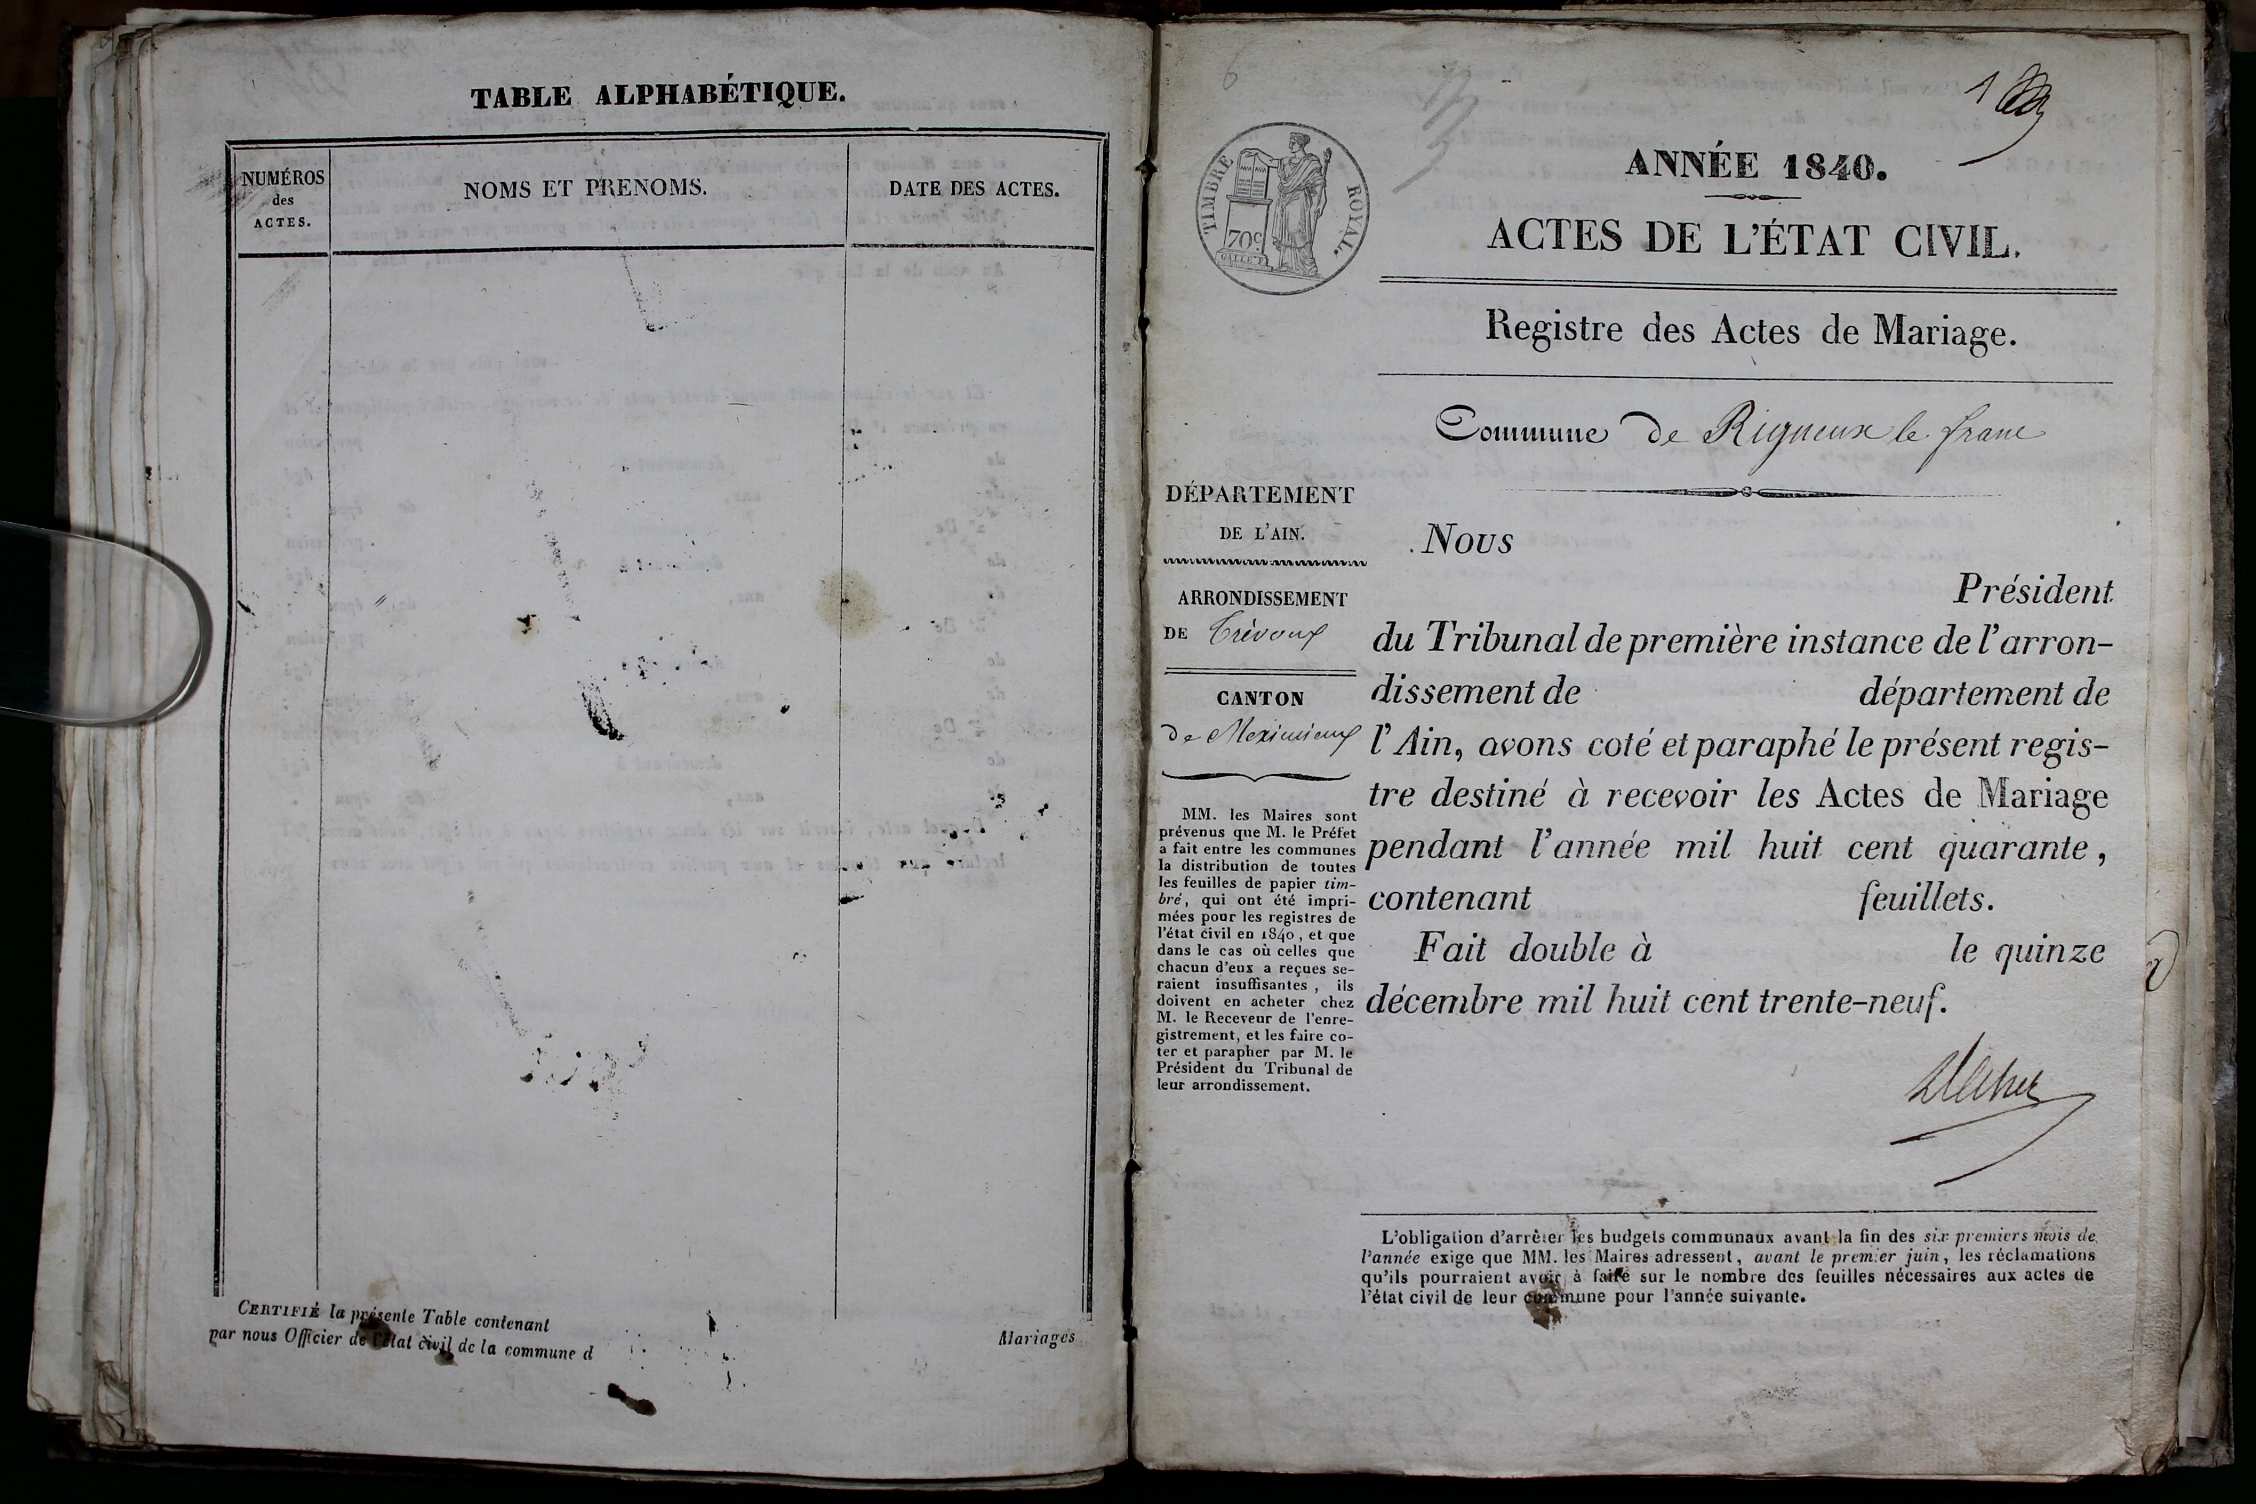 TABLE ALPHABÉTIQUE.
NUMÉROS
des
ACTES.
NOMS ET PRENOMS.
DATE DES ACTES.
CERTIFIÉ la présente Table contenant
Mariages
par nous Officier de l'état civil de la commune d
6
1
TIMBRE ROYAL.
70c
ANNÉE 1840.
ACTES DE L'ÉTAT CIVIL.
Registre des Actes de Mariage.
Commune de Rigneux le franc
DÉPARTEMENT
DE L'AIN.
ARRONDISSEMENT
DE Trévoux
CANTON
de Meximieux
MM. les Maires sont
prévenus que M. le Préfet
a fait entre les communes
la distribution de toutes
les feuilles de papier tim-
bré, qui ont été impri-
mées pour les registres de
l'état civil en 1840, et que
dans le cas où celles que
chacun d'eux a reçues se-
raient insuffisantes, ils
doivent en acheter chez
M. le Receveur de l'enre-
gistrement, et les faire co-
ter et parapher par M. le
Président du Tribunal de
leur arrondissement.
Nous
Président
du Tribunal de première instance de l'arron-
dissement de département de
l'Ain, avons coté et paraphé le présent regis-
tre destiné à recevoir les Actes de Mariage
pendant l'année mil huit cent quarante,
contenant feuillets.
Fait double à le quinze
décembre mil huit cent trente-neuf.
L'obligation d'arrêter les budgets communaux avant la fin des six premiers mois de
l'année exige que MM. les Maires adressent, avant le premier juin, les réclamations
qu'ils pourraient avoir à faire sur le nombre des feuilles nécessaires aux actes de
l'état civil de leur commune pour l'année suivante.